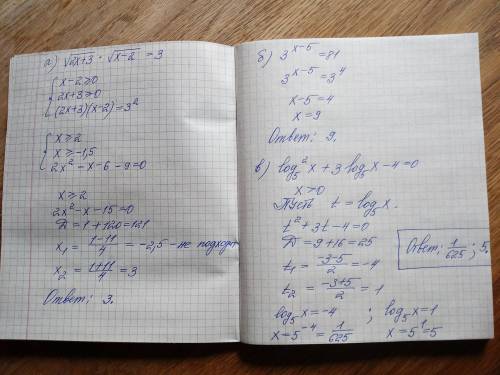 а) √2x+3 · √x-2 = 3
{ x-2≥0
2x+3≥0
(2x+3)(x-2)=3²
{ x≥2
x≥-1,5
2x²-x-6-9=0
x≥2
2x²-x-15=0
D=1+120=121
x₁ = (1-11)/4 = -2,5 - не подходит
x₂ = (1+11)/4 = 3
Ответ: 3.
б) 3^(x-5) = 81
3^(x-5) = 3⁴
x-5=4
x=9
Ответ: 9.
в) log₅²x + 3 log₅x - 4 = 0
x>0
Пусть t = log₅x.
t²+3t-4=0
D=9+16=25
t₁ = (-3-5)/2 = -4
t₂ = (-3+5)/2 = 1
log₅x=-4 ; log₅x=1
x=5⁻⁴ = 1/625 x=5¹=5
Ответ: 1/625 ; 5.